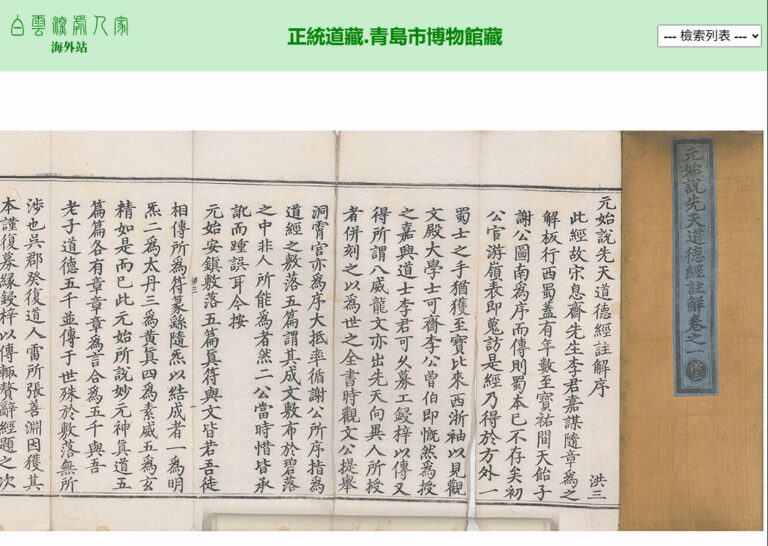 白雲深處人家
海外站
正統道藏.青島市博物館藏
--- 檢索列表 ---
元始說先天道德經註解卷之一
元始說先天道德經註解序 洪三
此經故宋息齋先生李君嘉謀隨章為之
解板行西蜀蓋有年數至寶祐間天飴子
謝公圖南為序而傳則蜀本已不存矣初
公官游嶺表即蒐訪是經乃得於方外一
蜀士之手猶獲至寶比來西浙袖以見觀
文殿大學士可齋李公曾伯即慨然為授
之嘉興道士李君可久募工鋟梓以傳又
得所謂八威龍文亦出先天向異人所授
者併刻之以為世之全書時觀文公提舉
洞霄宮亦為序大抵率循謝公所序指為
道經之敷落五篇謂其成文敷布於碧落
之中非人所能為者然二公當時惜皆承
訛而踵誤耳今按
元始安鎮敷落五篇真符與文皆若吾徒
相傳所為符篆繇隨炁以結成者一為明
炁二為太丹三為黃真四為素威五為玄
精如是而已此元始所說妙元神真道五
篇篇各有章章章為言合為五千與吾
老子道德五千並傳于世殊於敷落無所
涉也吳郡癸復道人雷所張善淵因獲其
本謹復募緣鋟梓以傳輒贅辭經題之次